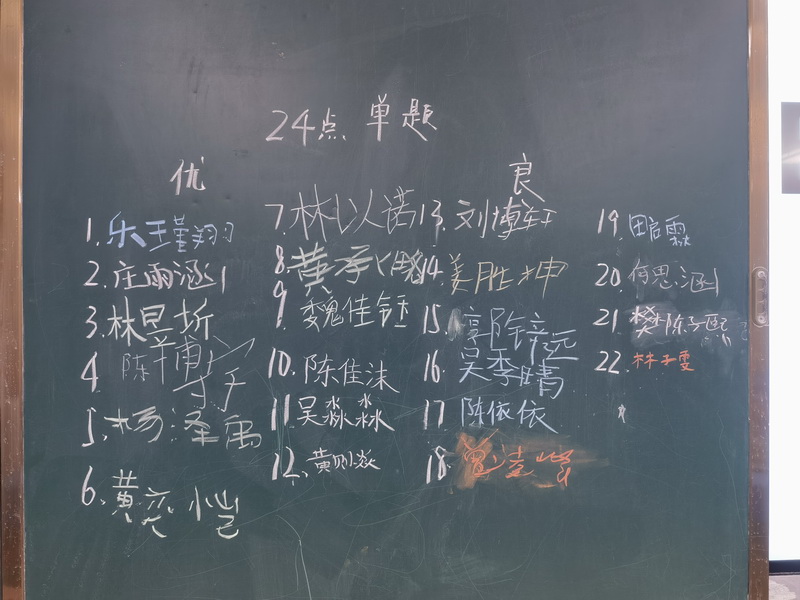 24点 单题
优
良
1. 乐王瑾翔
2. 庄雨涵
3. 林昱圻
4 陈
5. 杨泽禹
6. 黄奕恺
7. 林以诺
8. 黄
9. 魏佳钰
10. 陈佳沫
11 吴淼淼
12. 黄则焱
13. 刘博轩
14. 姜胜坤
15. 远
16. 吴季晴
17 陈依依
18.
19.
20 何思涵
21. 樊陈
22. 林子雯